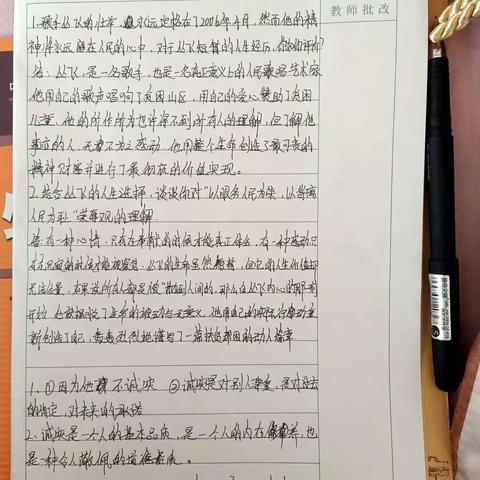 教师批改
1.歌手丛飞的生命永远定格在了2006年4月,然而他的精
神将永远留在人民的心中,对于丛飞短暂的人生经历,你如何评价
答:丛飞,是一名歌手,也是一名真正意义上的人民歌唱艺术家
他用自己的歌声唱响了贫困山区,用自己的爱心赞助了贫困
儿童,他的所作所为也许得不到所有人的理解,但了解他
事迹的人,无不为之感动,他用整个生命创造了最可贵的
精神财富并进行了最彻底的价值实现。
2.结合丛飞的人生选择,谈谈你对"以服务人民为荣,以背离
人民为耻"荣辱观的理解
答:有一种心情,只有在奉献的时候才能真正体会,有一种感动只
有在 的时候才能被 ,丛飞的生命虽然短暂,但它的人生价值却
无法估量,如果说所有人都是被"抛"到人间的,那么在丛飞内心的
开始,他就摆脱了生命的被动与无意义,他用自己的实际行动重
新创造了自己,轰轰烈烈地谱写了一篇扶危帮困的动人篇章
1、①因为他不诚实 ②诚实是对别人尊重,是对过去
的肯定,对未来的承诺
2.诚实是一个人的基本品质,是一个人的内在修养,也
是一种令人敬佩的道德素质。